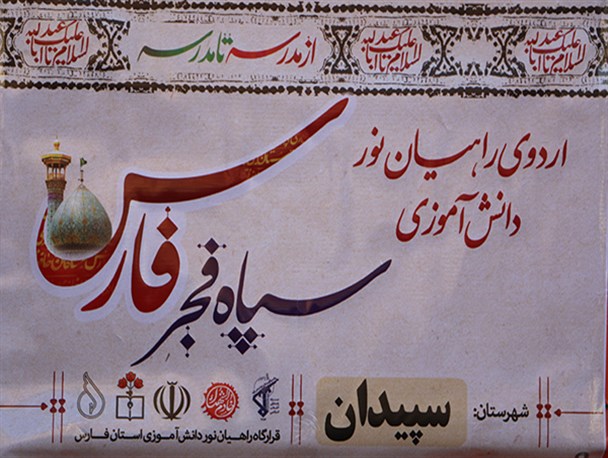 السلام علیک یا اباعبدالله
از مدرسه تا مدرسه
السلام علیک یا اباعبدالله
السلام علیک یا اباعبدالله
اردوی راهیان نور
دانش آموزی
سپاه فجر
فارس
شهرستان:
سپیدان
قرارگاه راهیان نور دانش آموزی استان فارس